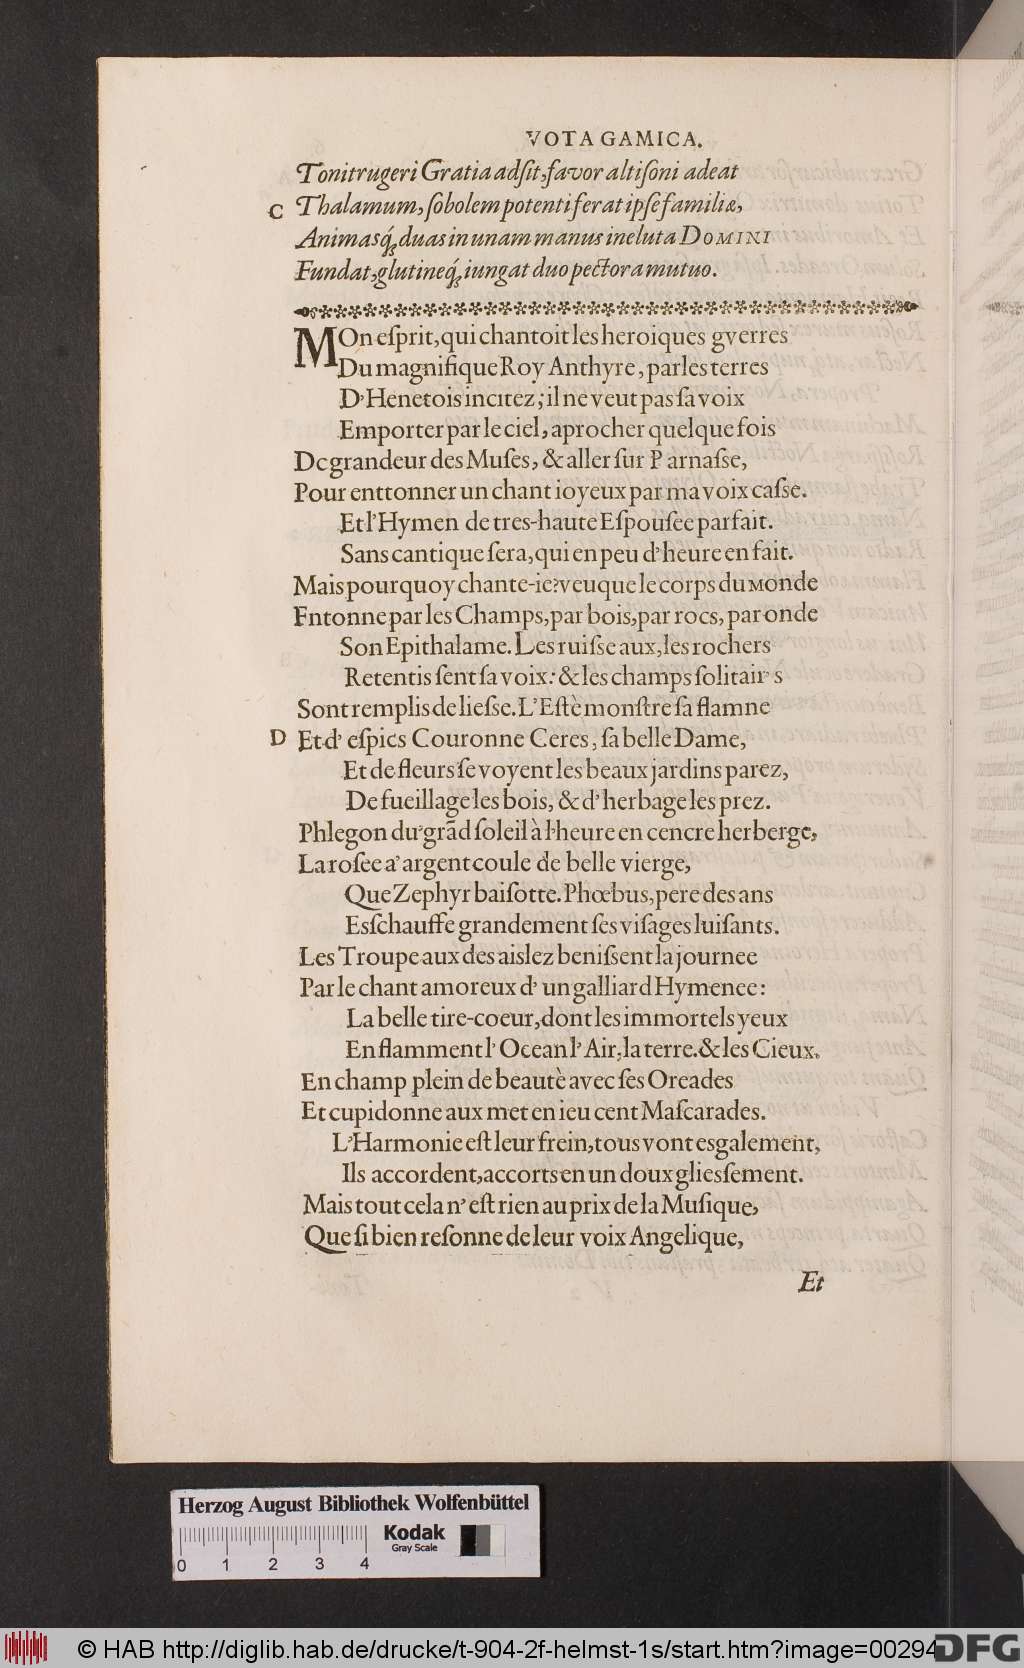 VOTA GAMICA.
Tonitrugeri Gratia adſit, favor altiſoni adeat
C Thalamum, ſobolem potenti ferat ipſe familiæ,
Animasq́; duas in unam manus ineluta DOMINI
Fundat, glutineq́; iungat duo pectora mutuo.
MOn eſprit, qui chantoit les heroiques gverres
Du magnifique Roy Anthyre, par les terres
D'Henetois incitez; il ne veut pas ſa voix
Emporter par le ciel, aprocher quelque fois
De grandeur des Muſes, & aller ſur Parnaſse,
Pour enttonner un chant ioyeux par ma voix caſse.
Et l'Hymen de tres-haute Eſpouſee parfait.
Sans cantique ſera, qui en peu d'heure en fait.
Mais pourquoy chante-ie? veu que le corps du Monde
Entonne par les Champs, par bois, par rocs, par onde
Son Epithalame. Les ruiſseaux, les rochers
Retentisſent ſa voix: & les champs ſolitairs
Sont remplis de lieſse. L'Eſtè monſtre ſa flamne
D Et d' eſpics Couronne Ceres, ſa belle Dame,
Et de fleurs ſe voyent les beaux jardins parez,
De fueillage les bois, & d'herbage les prez.
Phlegon du grãd ſoleil à l'heure en cencre herberge,
La roſee a' argent coule de belle vierge,
Que Zephyr baiſotte. Phœbus, pere des ans
Esſchauffe grandement ſes viſages luiſants.
Les Troupeaux des aislez beniſsent la journee
Par le chant amoreux d' un galliard Hymenee:
La belle tire-coeur, dont les immortels yeux
Enflamment l' Ocean l' Air, la terre. & les Cieux.
En champ plein de beautè avec ſes Oreades
Et cupidonneaux met en ieu cent Maſcarades.
L'Harmonie eſt leur frein, tous vont esgalement,
Ils accordent, accorts en un doux glieſsement.
Mais tout cela n' eſt rien au prix de la Muſique,
Que ſi bien reſonne de leur voix Angelique,
Et
Herzog August Bibliothek Wolfenbüttel
Kodak
Gray Scale
0 1 2 3 4
© HAB http://diglib.hab.de/drucke/t-904-2f-helmst-1s/start.htm?image=00294
DFG